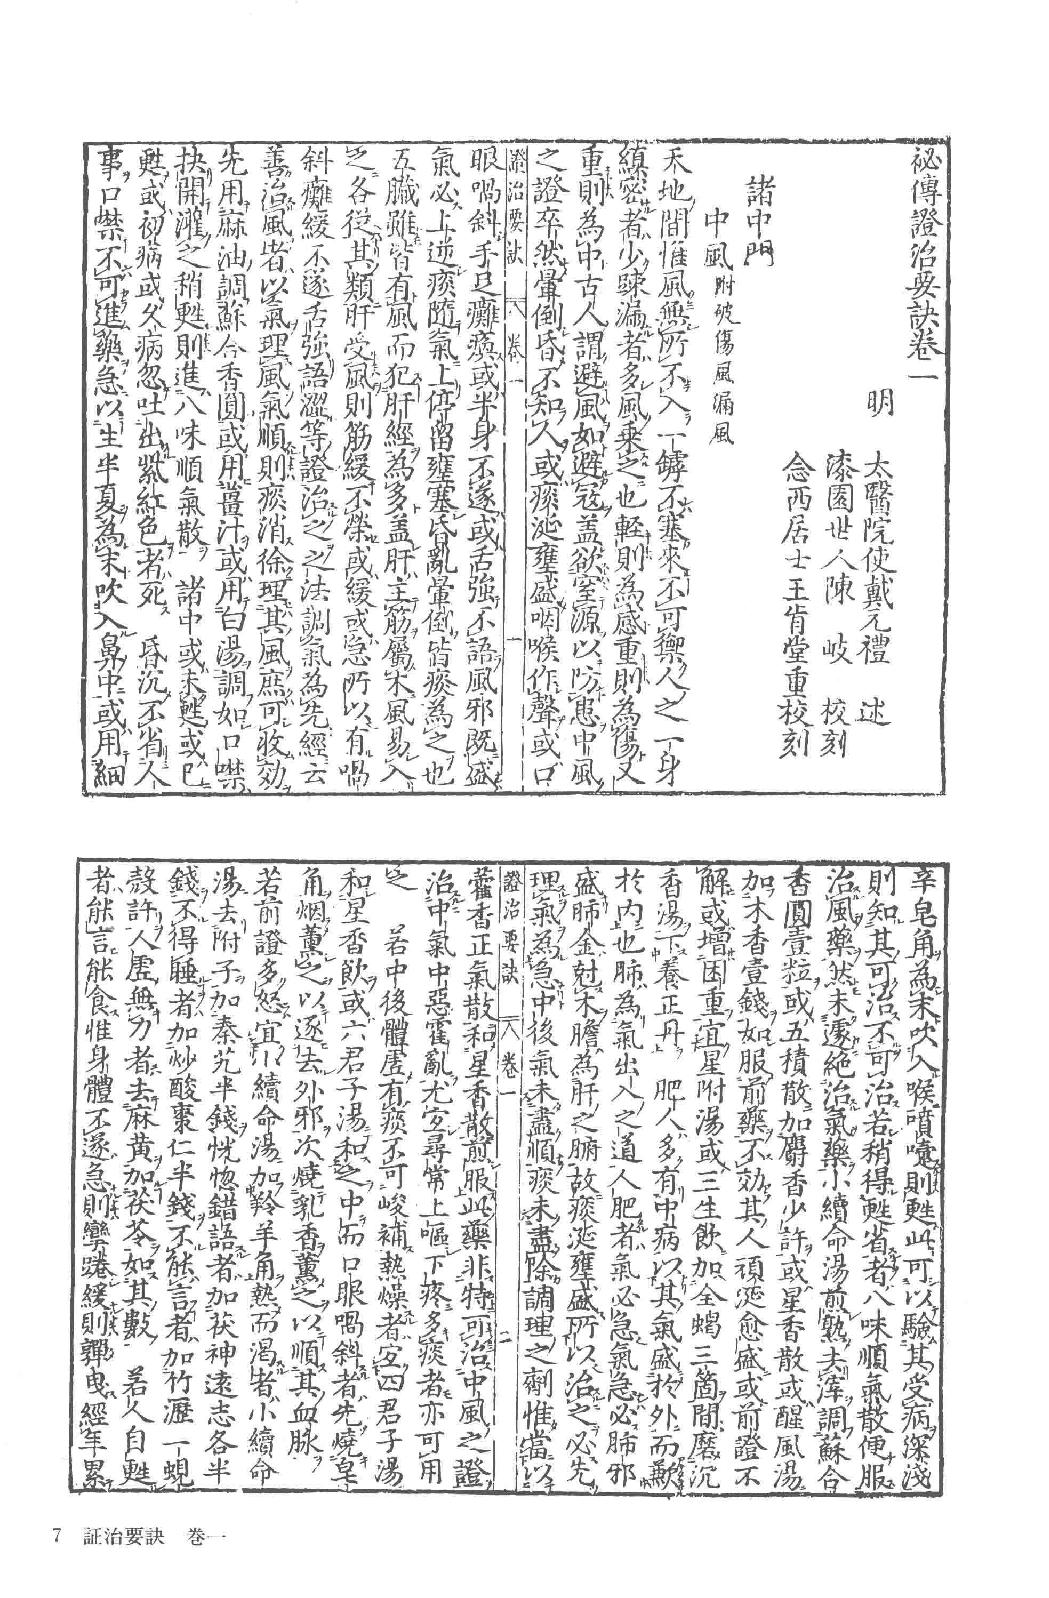 祕傳證治要訣卷一
明　太醫院使戴元禮　述
漆園世人陳　岐　校刻
念西居士王肯堂重校刻
諸中門
中風附破傷風漏風
天地間惟風無所不入一罅不塞來不可禦人之一身
縝密者少踈漏者多風乗之也輕則為感重則為傷又
重則為中古人謂避風如避寇盖欲窒源以防患中風
之證卒然暈倒昏不知人或痰涎壅盛咽喉作聲或口
證治要訣　卷一　一
眼喎斜手足癱瘓或半身不遂或舌強不語風邪既盛
氣必上逆痰隨氣上停留壅塞昏亂暈倒皆痰為之也
五臟雖皆有風而犯肝經為多盖肝主筋屬木風易入
之各從其類肝受風則筋緩不榮或緩或急所以有喎
斜癱緩不遂舌強語澀等證治之之法調氣為先經云
善治風者以氣理風氣順則痰消徐理其風庶可收効
先用麻油調蘇合香圓或用薑汁或用白湯調如口噤
抉開灌之稍甦則進八味順氣散　諸中或未甦或已
甦或初病或久病忽吐出紫紅色者死　昏沉不省人
事口噤不可進藥急以生半夏為末吹入鼻中或用細
辛皂角為末吹入喉噴嚏則甦此可以驗其受病深淺
則知其可治不可治若稍得甦省者八味順氣散便服
治風藥然未遽絶治氣藥小續命湯煎熟去滓調蘇合
香圓壹粒或五積散加麝香少許或星香散或醒風湯
加木香壹錢如服前藥不効其人頑涎愈盛或前證不
解或增困重宜星附湯或三生飲加全蝎三箇間磨沉
香湯下養正丹　肥人多有中病以其氣盛於外而歉
於内也肺為氣出入之道人肥者氣必急氣急必肺邪
盛肺金尅木膽為肝之腑故痰涎壅盛所以治之必先
理氣為急中後氣未盡順痰未盡除調理之劑惟當以
證治要訣　卷一　二
藿香正氣散和星香散煎服此藥非特可治中風之證
治中氣中惡霍亂尤宜尋常上嘔下疼多痰者亦可用
之　若中後體虚有痰不可峻補熱燥者宜四君子湯
和星香飲或六君子湯和之中而口眼喎斜者先燒皂
角烟薰之以逐去外邪次燒乳香薰之以順其血脉
若前證多怒宜小續命湯加羚羊角熱而渇者小續命
湯去附子加秦艽半錢恍惚錯語者加茯神遠志各半
錢不得睡者加炒酸棗仁半錢不能言者加竹瀝一蜆
殼許人虚無力者去麻黄加茯苓如其數　若人自甦
者能言能食惟身體不遂急則攣踡緩則嚲曳經年累
7　証治要訣　巻一